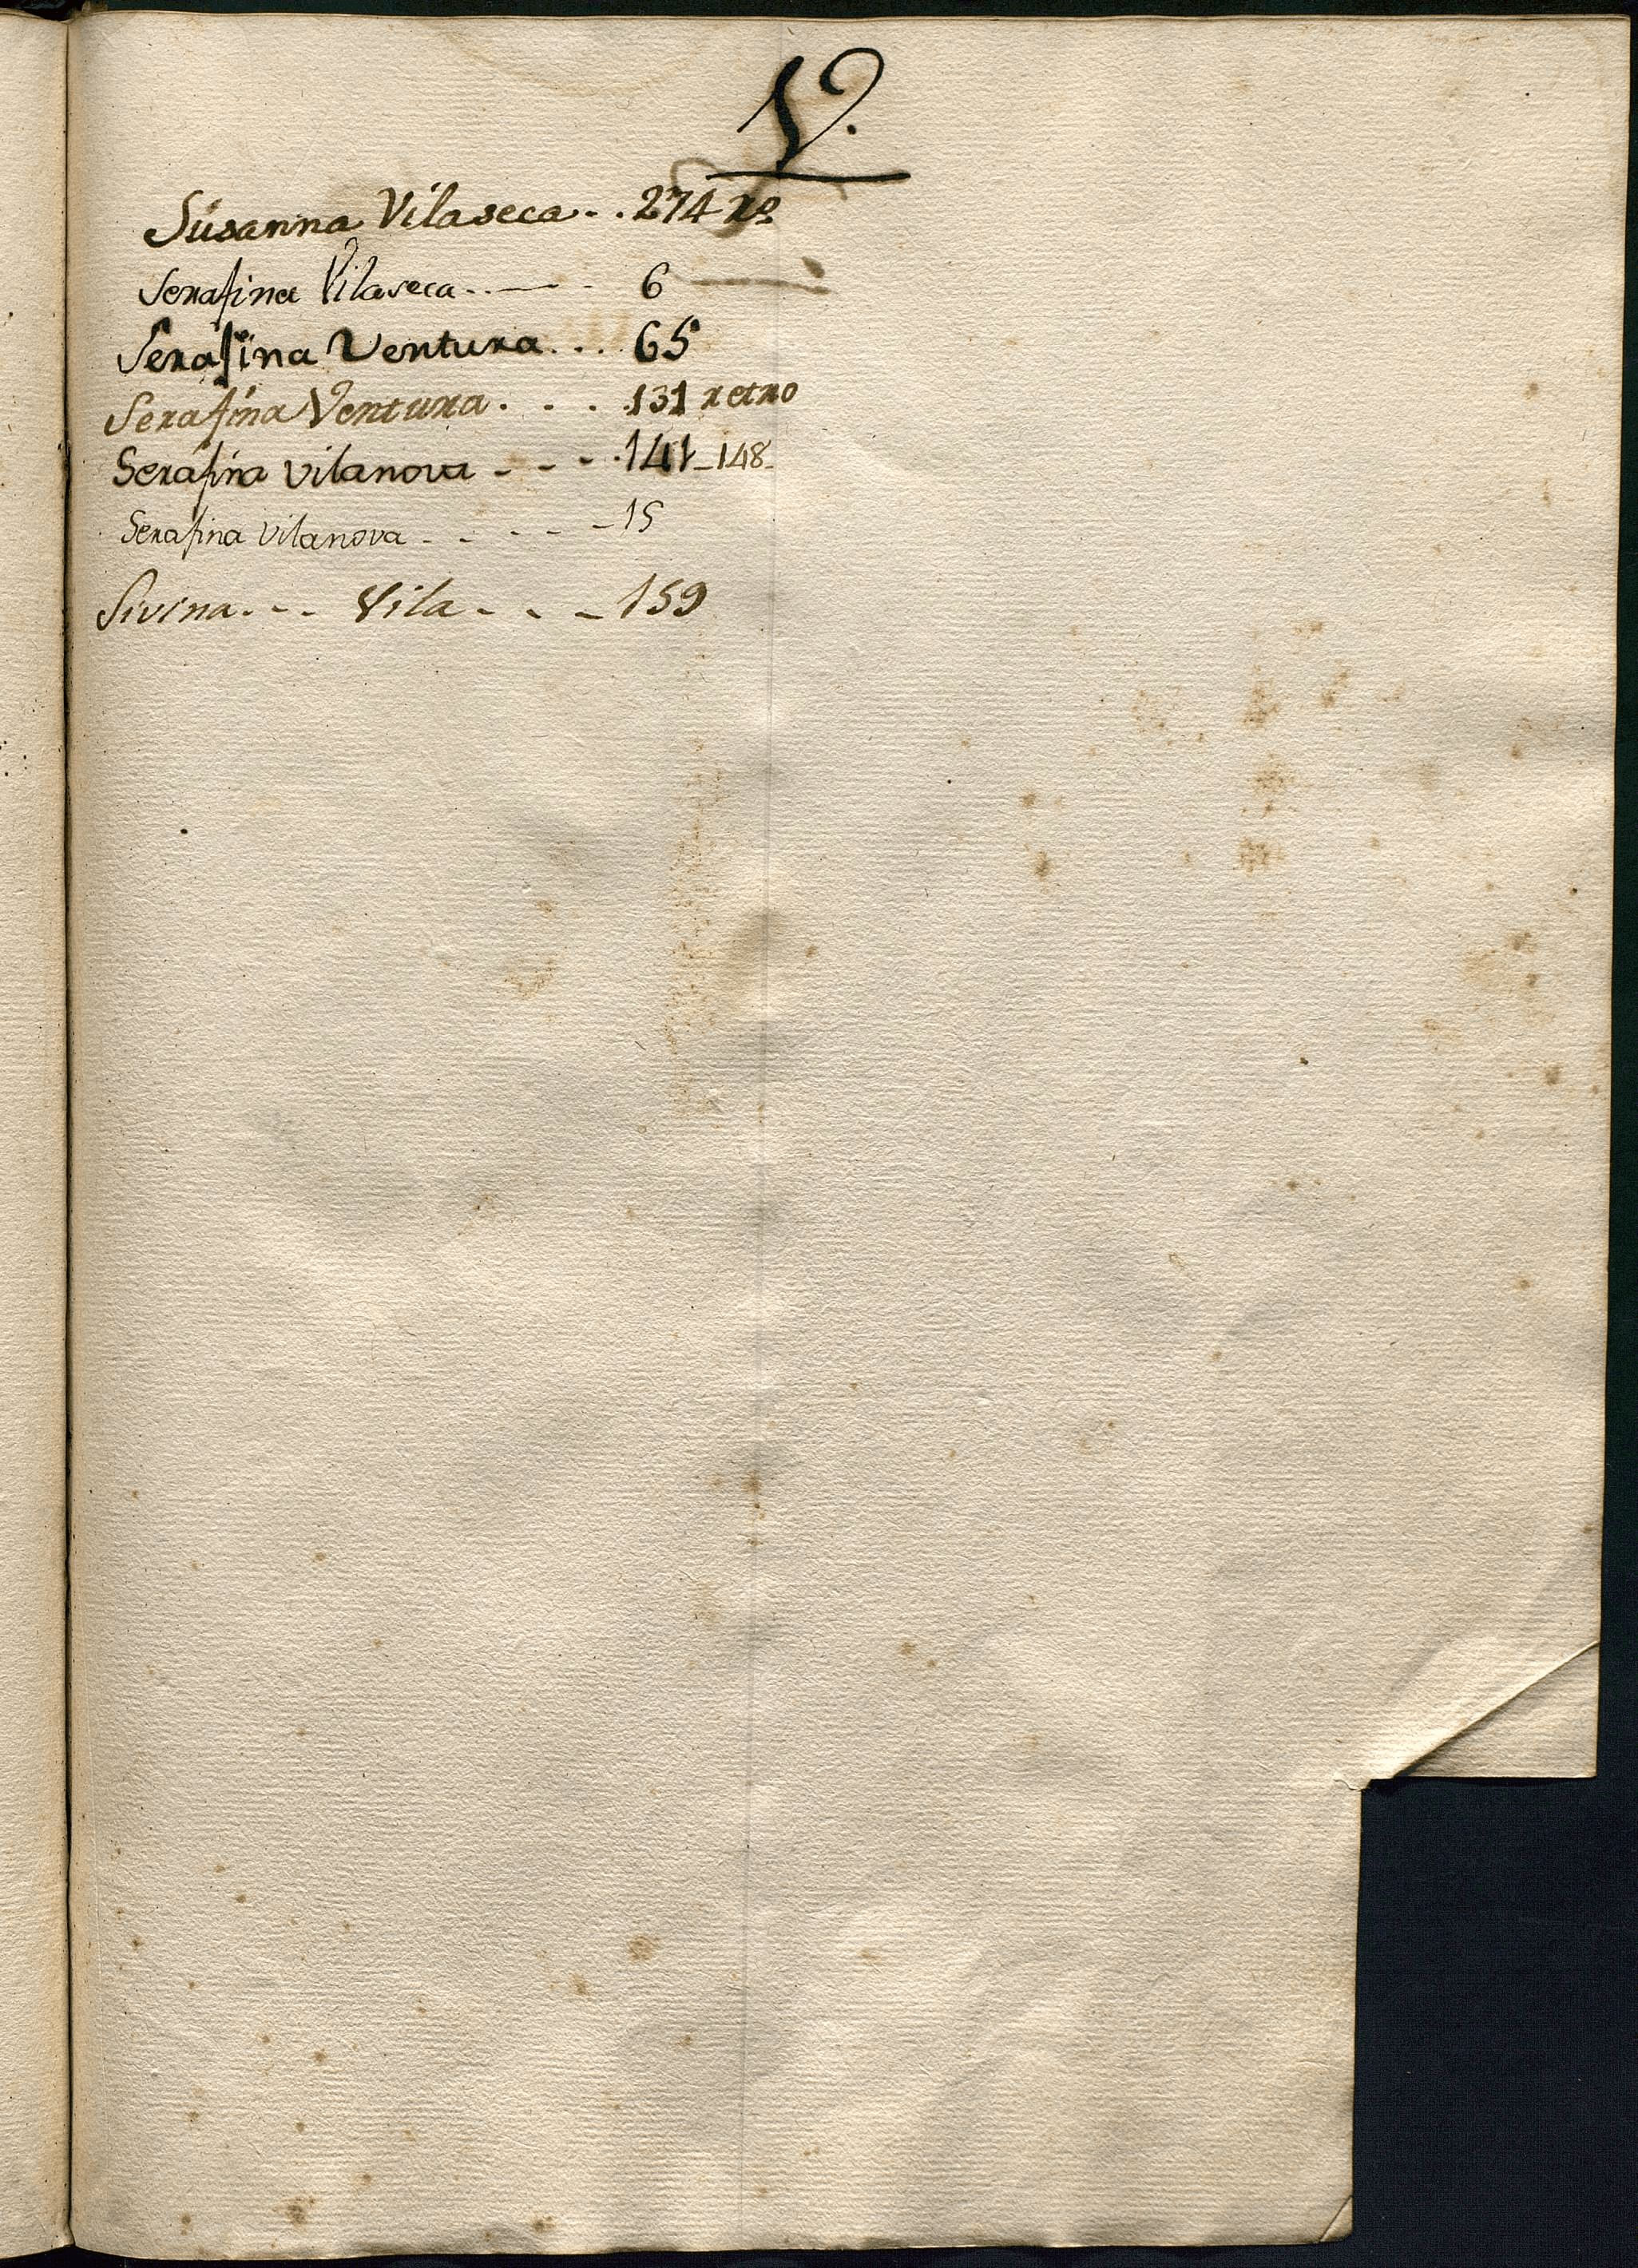 V.
Susanna Vilaseca . . 274 rº
Serafina Vilaseca . . — - 6 —
Serafina Ventura . . . 65
Serafina Ventura . . . . 131 retro
Serafina vilanova - - - . 141 _ 148 _
Serafina vilanova - - - - - 15
Sivina . - - Vila - - - 159